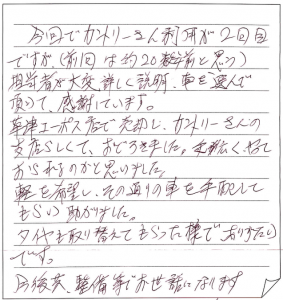 今回でカントリーさん利用が2回目
ですが(前回は約20数年前と思う)
担当者が大変、詳しく説明、車を選んで
頂いて、感謝しています。
草津エーポス店で売却し、カントリーさんの
支店らしくて、おどろきました。手広くやって
おられるのかと思いました。
軽を希望し、その通りの車を手配して
もらい助かりました。
タイヤも取り替えてもらった様でありがたい
です。
今後共、整備等でお世話になります